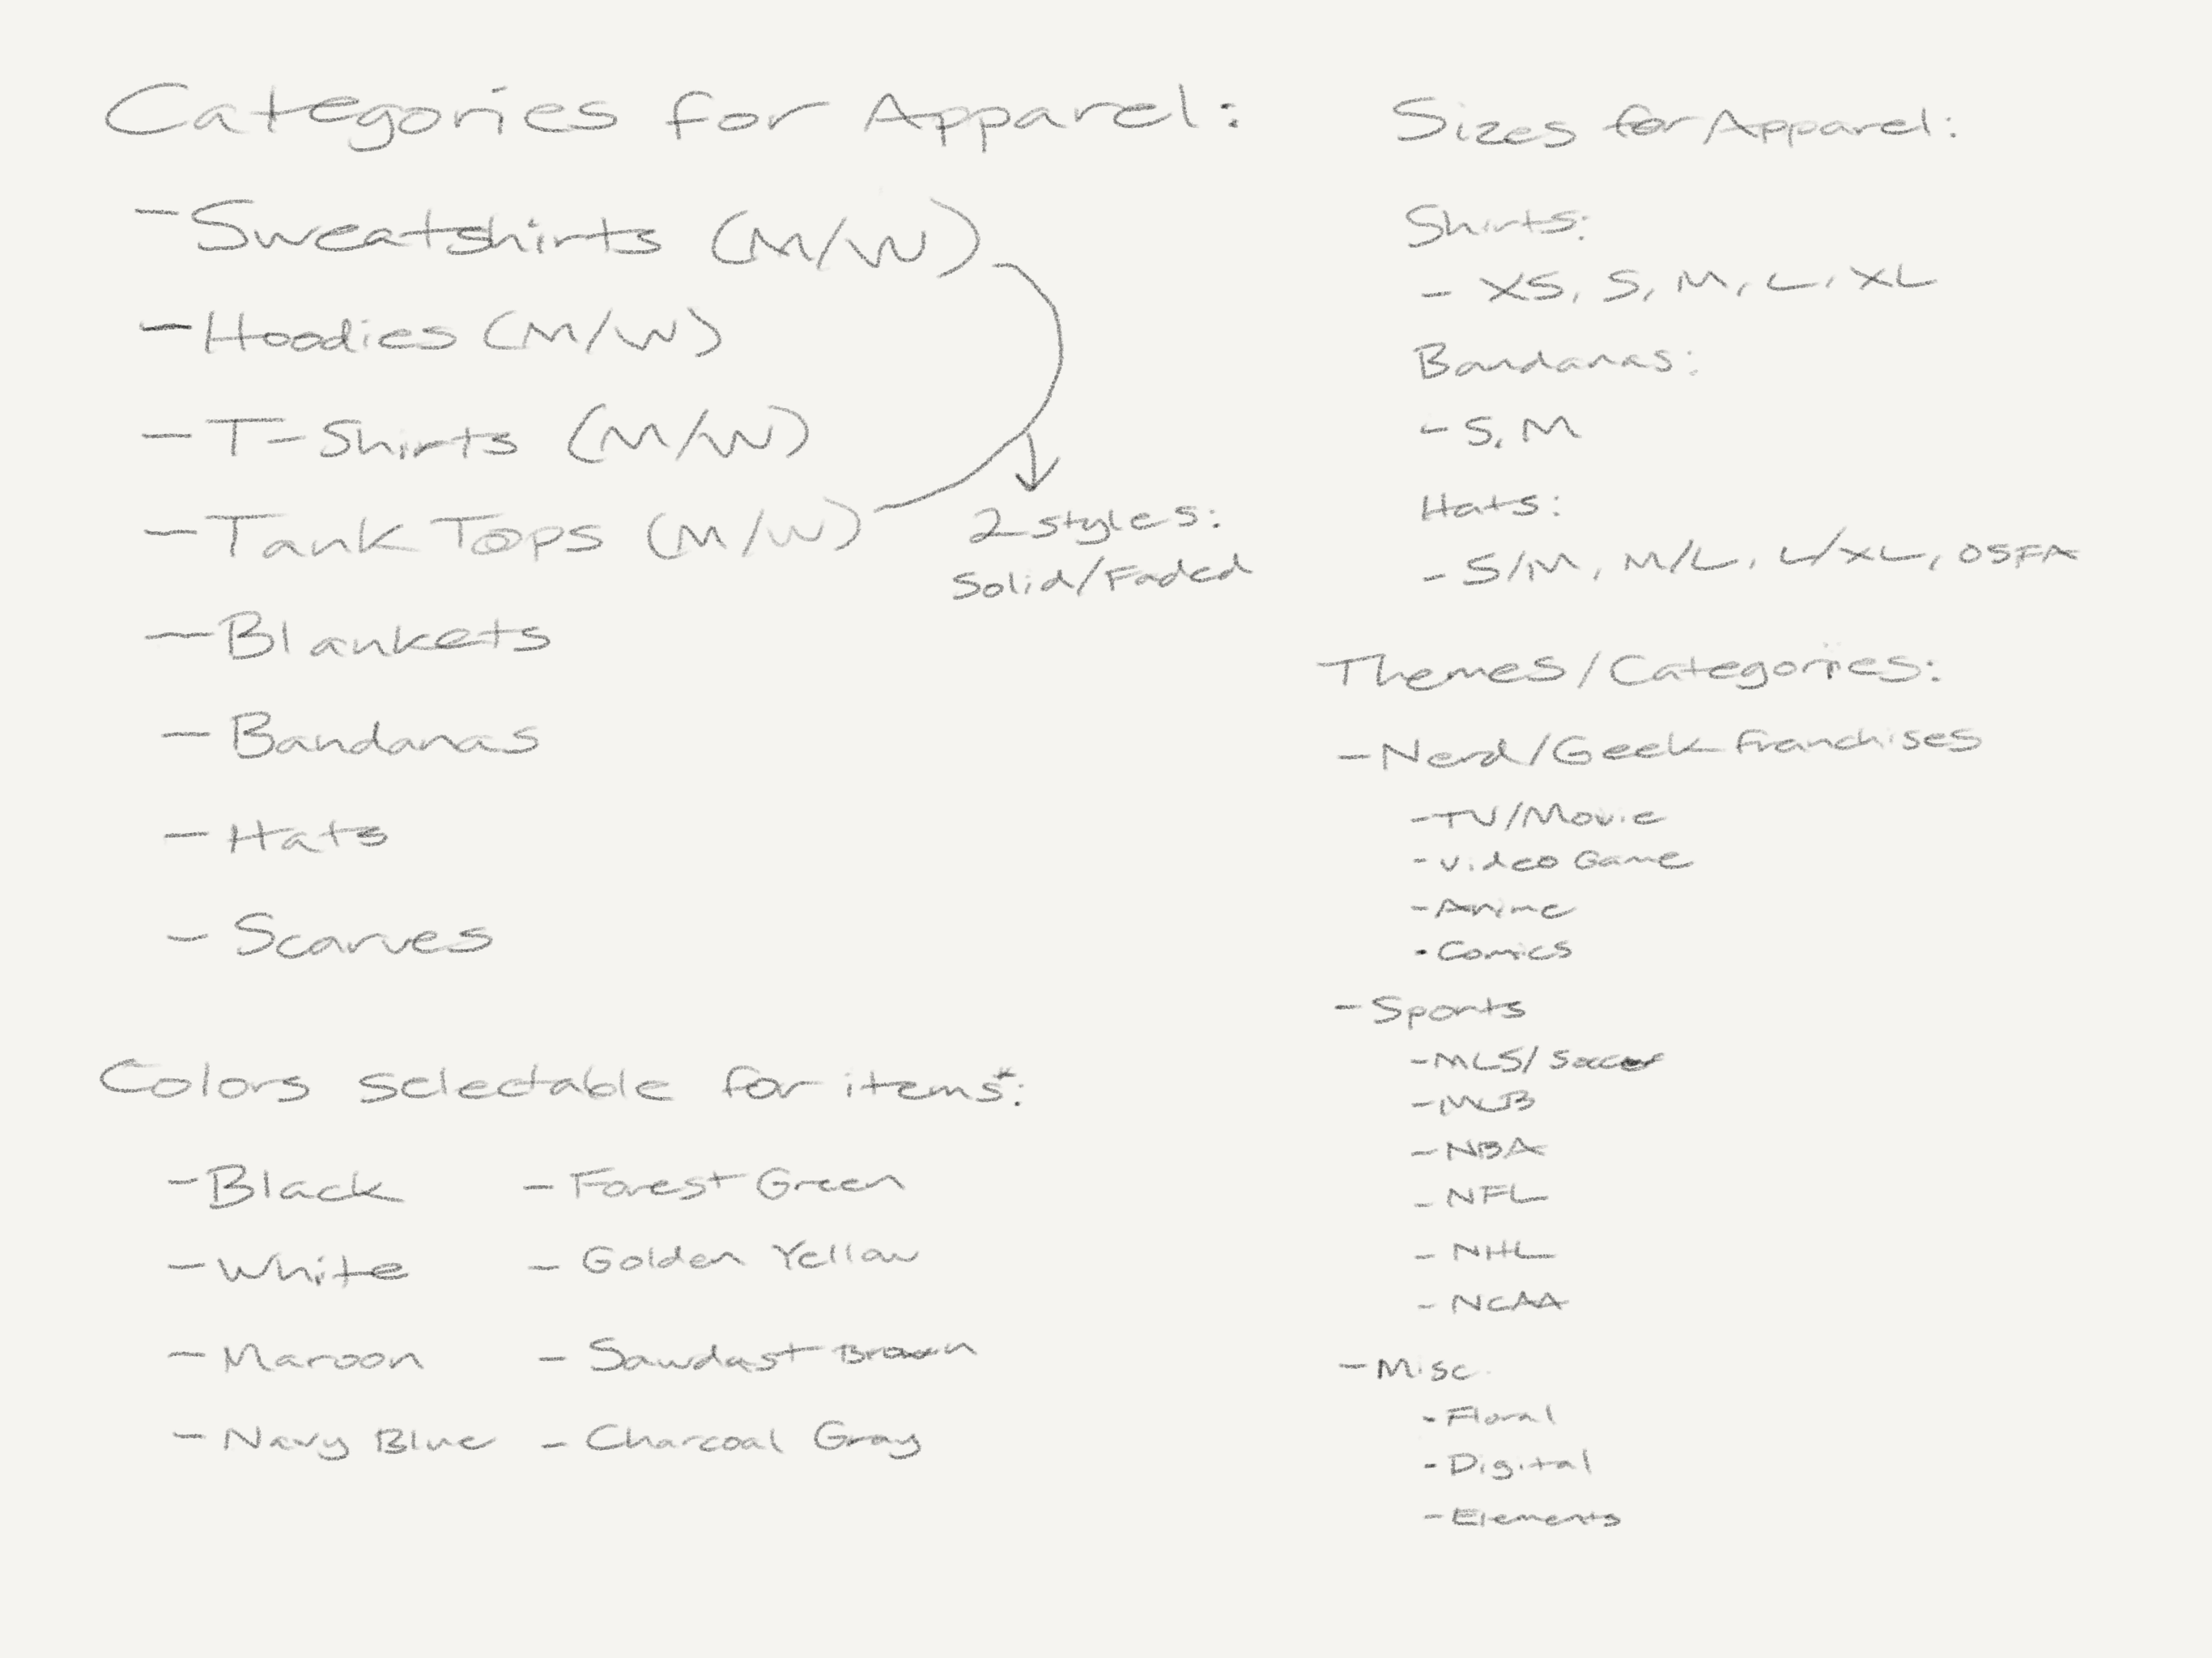 Categories for Apparel:
- Sweatshirts (M/W)
- Hoodies (M/W)
- T-Shirts (M/W)
- Tank Tops (M/W)
2 styles:
Solid/Faded
- Blankets
- Bandanas
- Hats
- Scarves
Colors selectable for items*:
- Black
- White
- Maroon
- Navy Blue
- Forest Green
- Golden Yellow
- Sawdust Brown
- Charcoal Gray
Sizes for Apparel:
Shirts:
- XS, S, M, L, XL
Bandanas:
- S, M
Hats:
- S/M, M/L, L/XL, OSFA
Themes/Categories:
- Nerd/Geek franchises
- TV/Movie
- Video Game
- Anime
- Comics
- Sports
- MLS/Soccer
- MLB
- NBA
- NFL
- NHL
- NCAA
- Misc.
- Floral
- Digital
- Elements